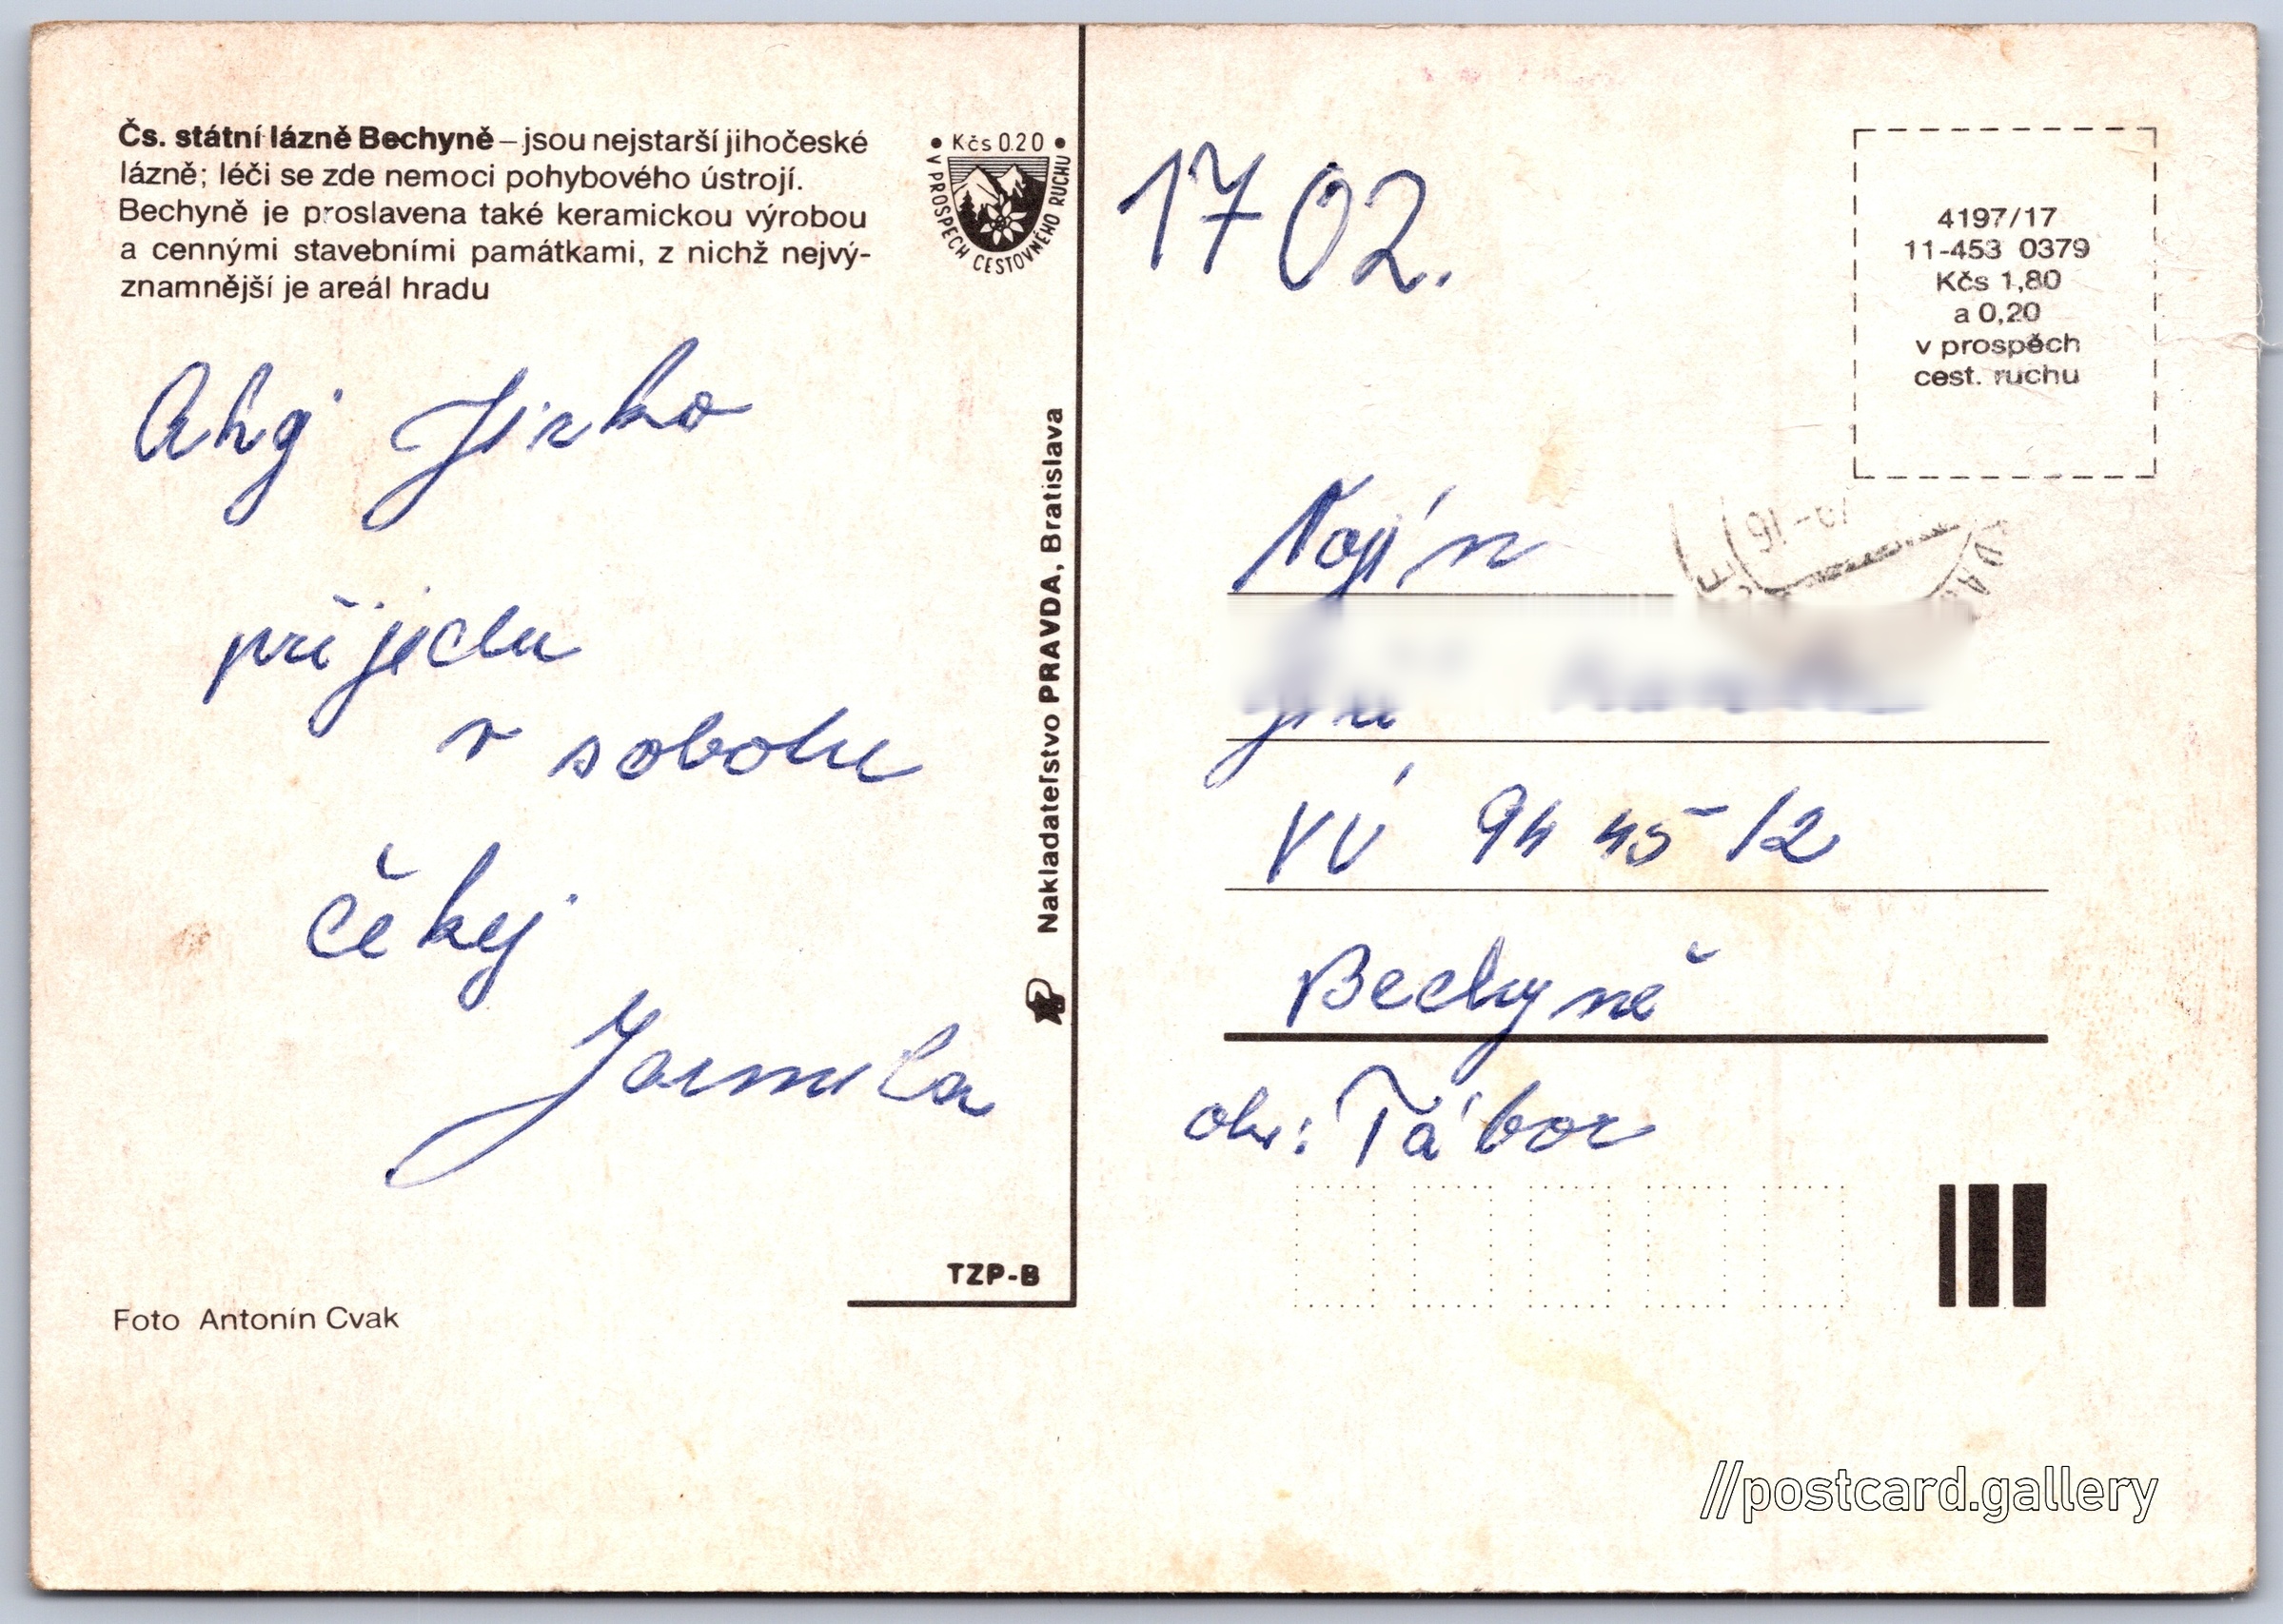 Čs. státní lázně Bechyně – jsou nejstarší jihočeské
lázně; léči se zde nemoci pohybového ústrojí.
Bechyně je proslavena také keramickou výrobou
a cennými stavebními památkami, z nichž nejvý-
znamnější je areál hradu
• Kčs 0.20 •
V PROSPĚCH CESTOVNÉHO RUCHU
Ahoj Jirko
přijedu
v sobotu
čekej
Jarmila
Foto Antonín Cvak
TZP-B
Nakladateľstvo PRAVDA, Bratislava
17 02.
4197/17
11-453 0379
Kčs 1,80
a 0,20
v prospěch
cest. ruchu
Vojín
VÚ 94 45 12
Bechyně
okr: Tábor
//postcard.gallery